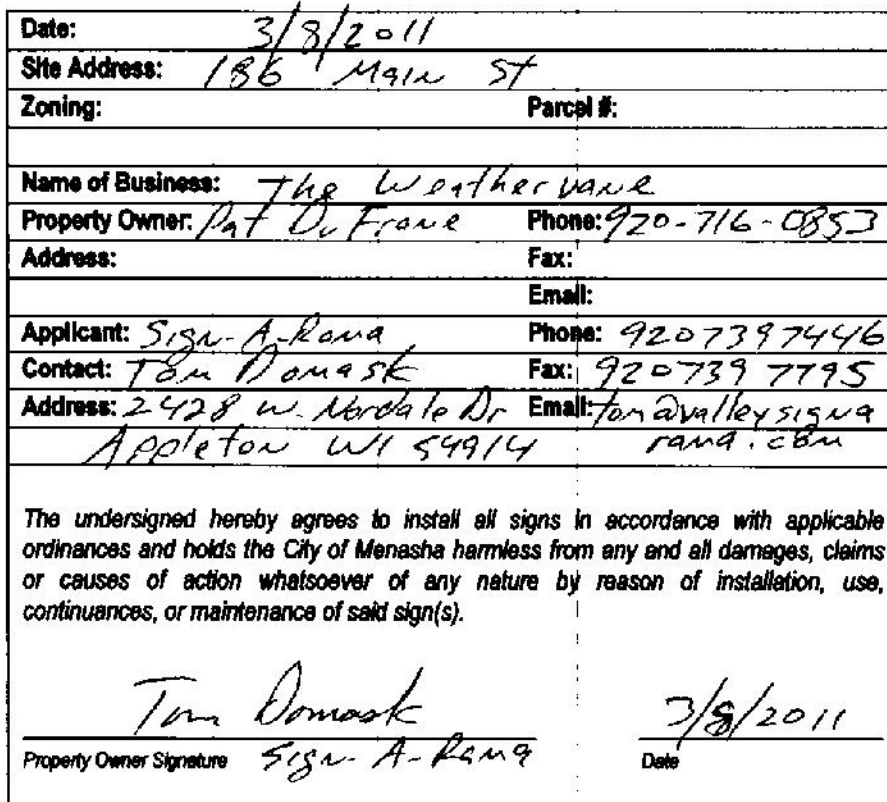 Date: 3/8/2011
Site Address: 186 Main St
Zoning: Parcel #:
Name of Business: The Weathervane
Property Owner: Pat DuFrane Phone: 920-716-0853
Address: Fax:
Email:
Applicant: Sign-A-Rama Phone: 9207397446
Contact: Tom Domask Fax: 920739 7795
Address: 2428 W. Nordale Dr Email: tom@valleysigna
Appleton WI 54914 rama.com
The undersigned hereby agrees to install all signs in accordance with applicable
ordinances and holds the City of Menasha harmless from any and all damages, claims
or causes of action whatsoever of any nature by reason of installation, use,
continuances, or maintenance of said sign(s).
Tom Domask 3/8/2011
Property Owner Signature Sign-A-Rama Date